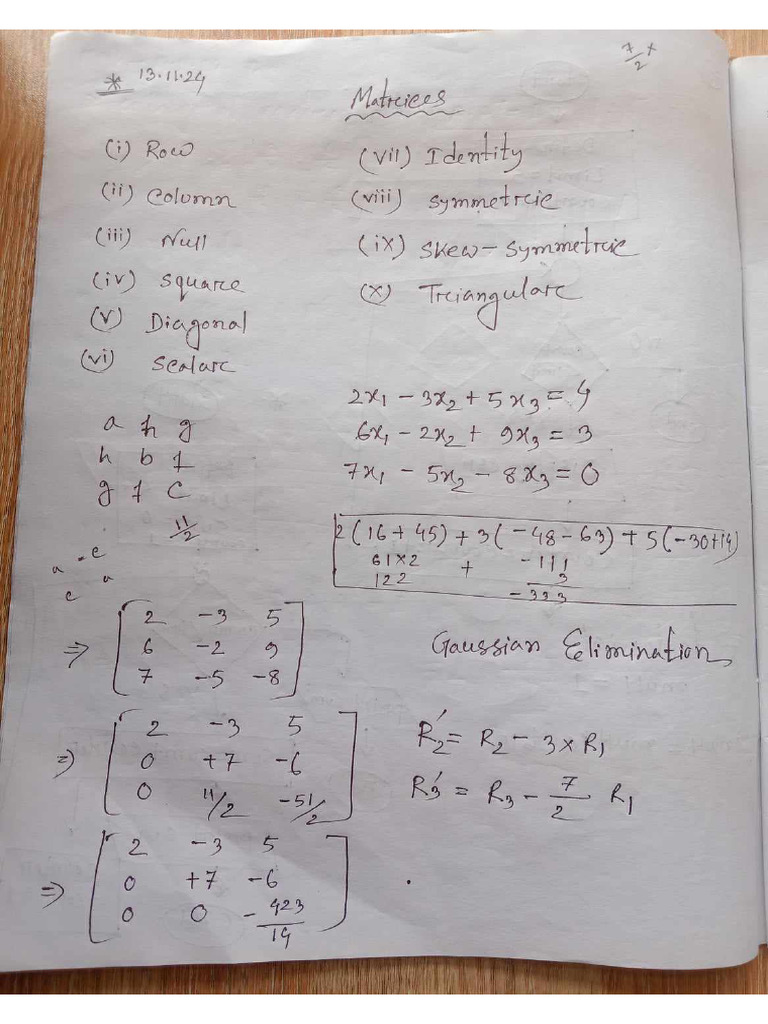 7/2 x
* 13.11.24
Matrcices
(i) Row
(ii) Column
(iii) Null
(iv) Square
(v) Diagonal
(vi) Scalarc
(vii) Identity
(viii) Symmetrcic
(ix) Skew-Symmetrcic
(x) Trciangularc
a h g
h b f
g f c
11/2
a c
c a
2x₁ - 3x₂ + 5x₃ = 4
6x₁ - 2x₂ + 9x₃ = 3
7x₁ - 5x₂ - 8x₃ = 0
2(16+45) + 3(-48-63) + 5(-30+14)
61×2 + -111
122 3
-333
⇒ [2 -3 5
6 -2 9
7 -5 -8]
Gaussian Elimination
⇒ [2 -3 5
0 +7 -6
0 11/2 -51/2]
R₂' = R₂ - 3×R₁
R₃' = R₃ - 7/2 R₁
⇒ [2 -3 5
0 +7 -6
0 0 -423/14]